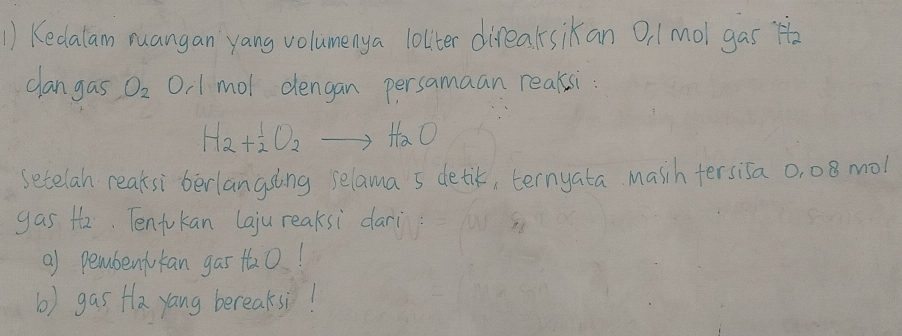 1) Kedalam ruangan yang volumenya 10 liter direaksikan 0,1 mol gas H2
dan gas O2 0,1 mol dengan persamaan reaksi :
H2 + 1/2 O2 → H2O
Setelah reaksi berlangsung selama 5 detik, ternyata masih tersisa 0,08 mol
gas H2. Tentukan laju reaksi dari :
a) pembentukan gas H2O !
b) gas H2 yang bereaksi !